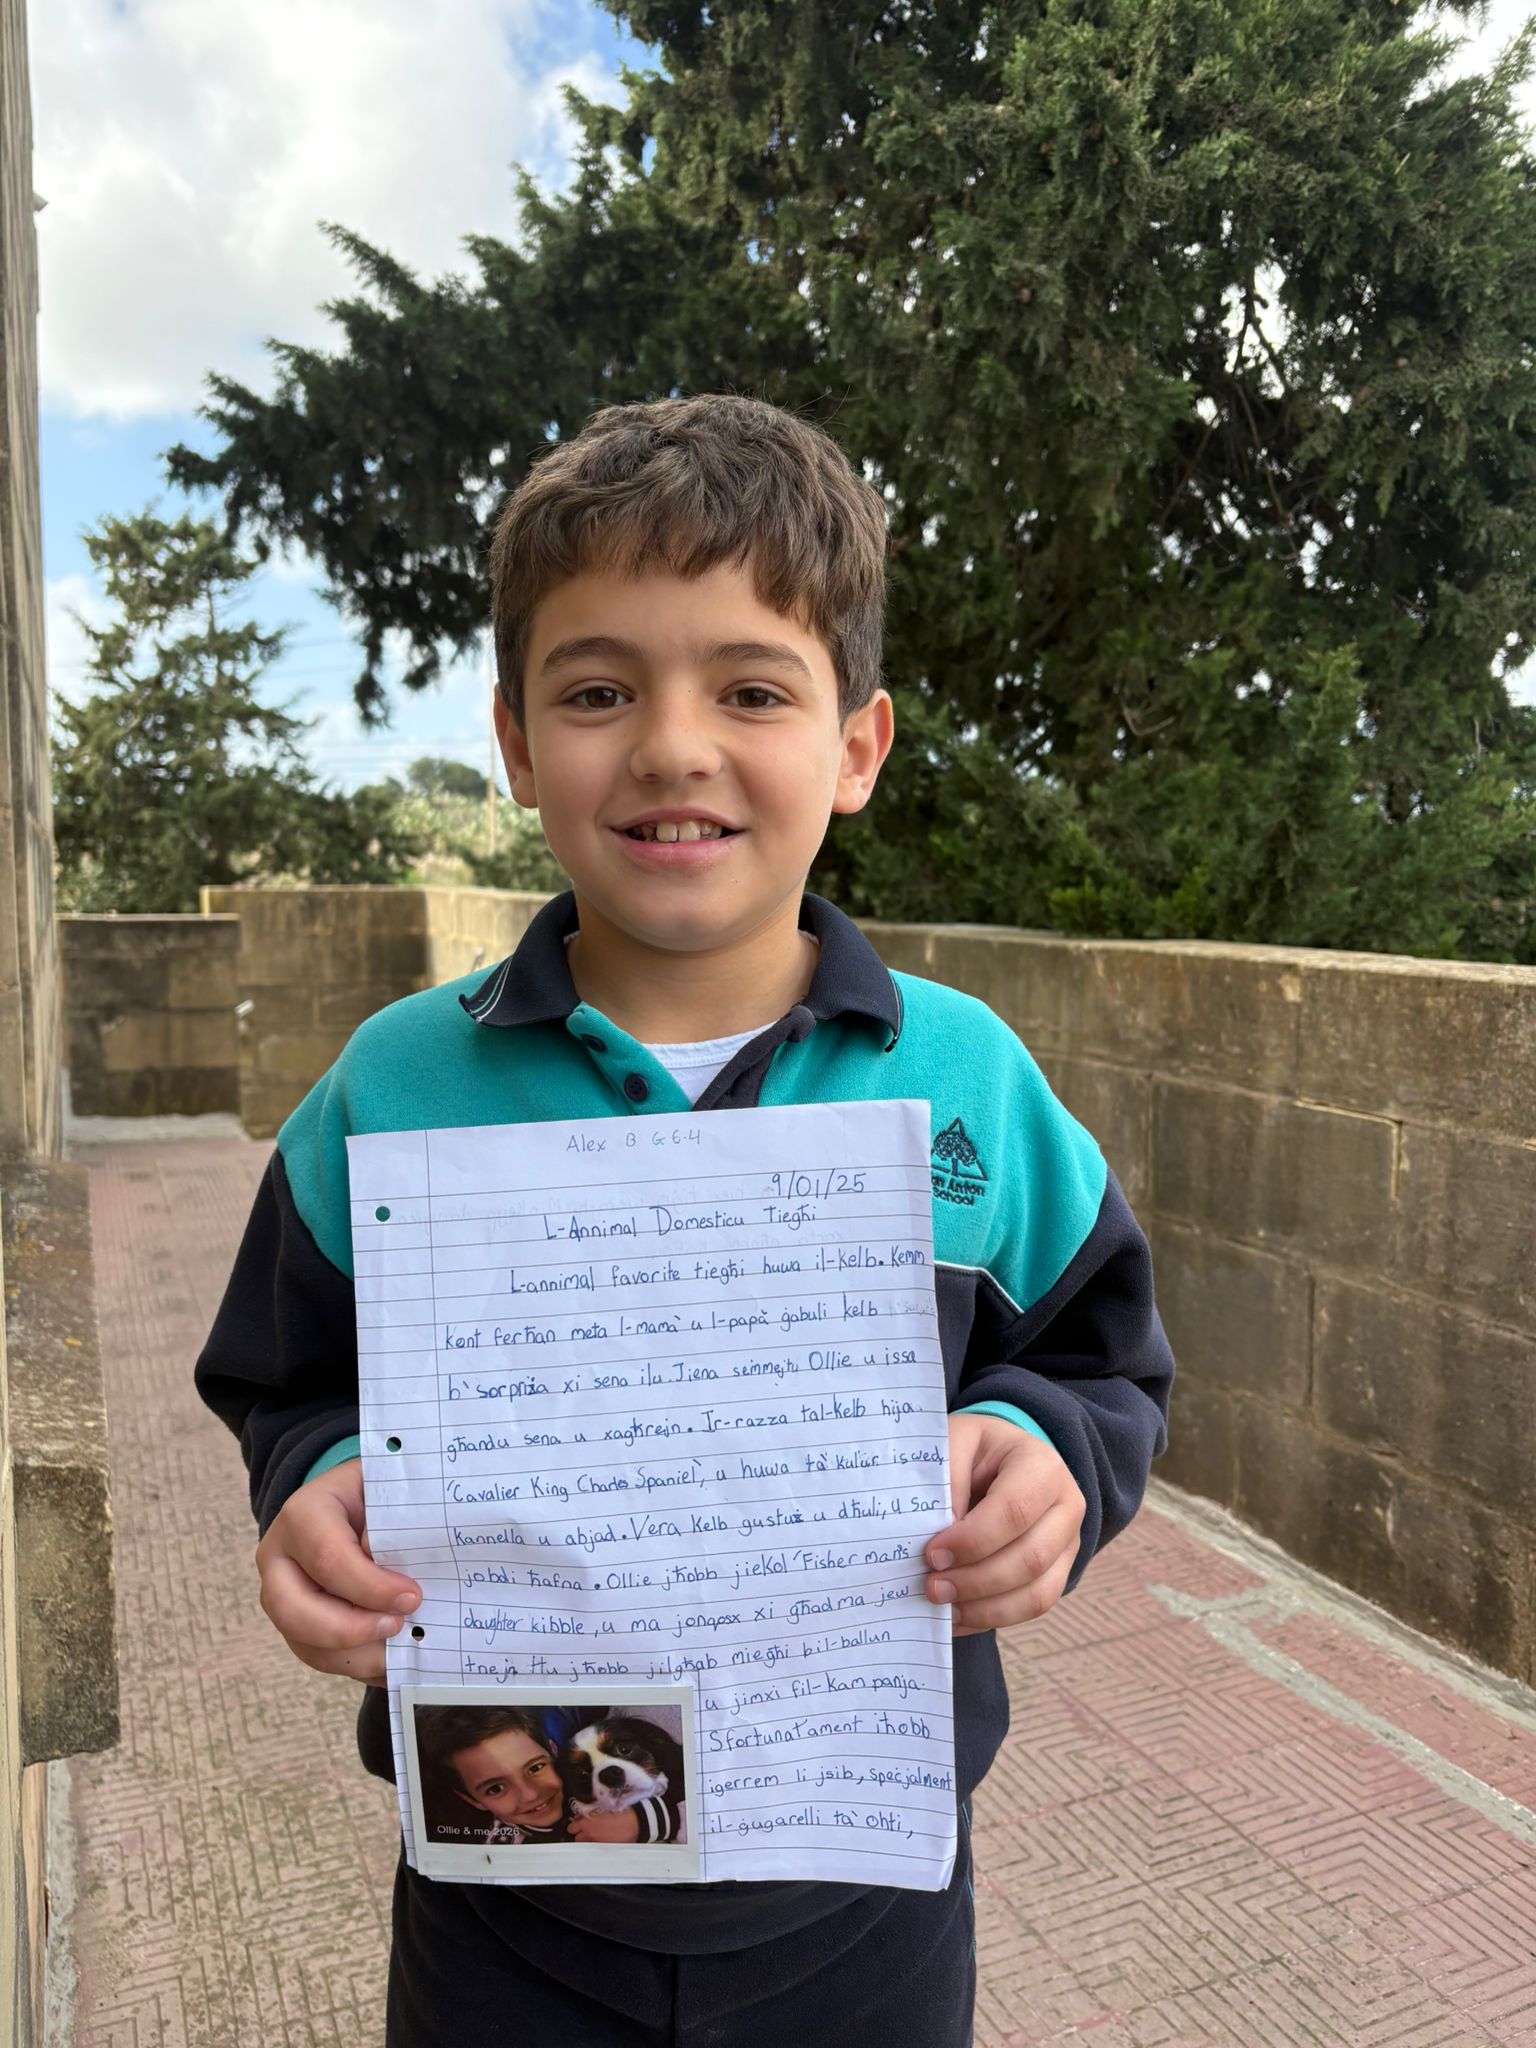 Alex B G 6.4
9/01/25
L-Annimal Domesticu Tiegħi
L-annimal favorite tiegħi huwa il-kelb. Kemm
kont ferħan meta l-mamà u l-papà ġabuli kelb
b'sorpriża xi sena ilu. Jiena semmejtu Ollie u issa
għandu sena u xagħrejn. Ir-razza tal-kelb hija
'Cavalier King Charles Spaniel', u huwa ta' kulur iswed,
kannella u abjad. Vera kelb gustuż u dħuli, u sar
jobdi ħafna. Ollie jħobb jiekol 'Fisherman's
daughter kibble, u ma jonqosx xi għadma jew
tnejn ttu jħobb jilgħab miegħi bil-ballun
u jimxi fil-kampanja.
Sfortunatament iħobb
igerrem li jsib, speċjalment
il-ġugarelli ta' oħti,
Ollie & me 2026
San Anton
School